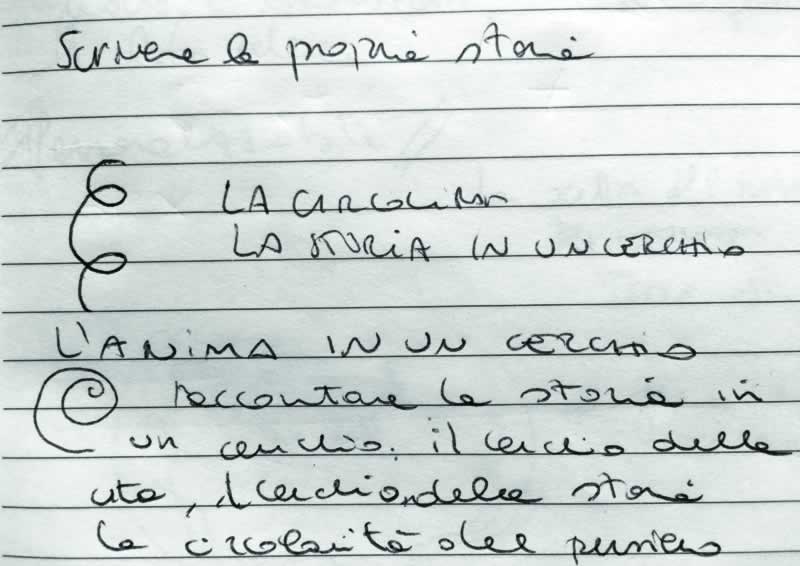 Scrivere la propria storia
LA CIRCOLARITÀ
LA STORIA IN UN CERCHIO
L'ANIMA IN UN CERCHIO
raccontare la storia in
un cerchio. il cerchio della
vita, il cerchio della storia
la circolarità del pensiero